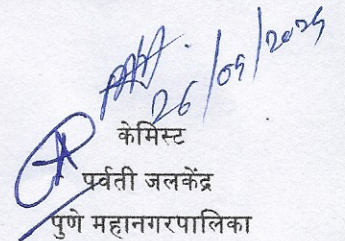 26/09/2025
केमिस्ट
पर्वती जलकेंद्र
पुणे महानगरपालिका